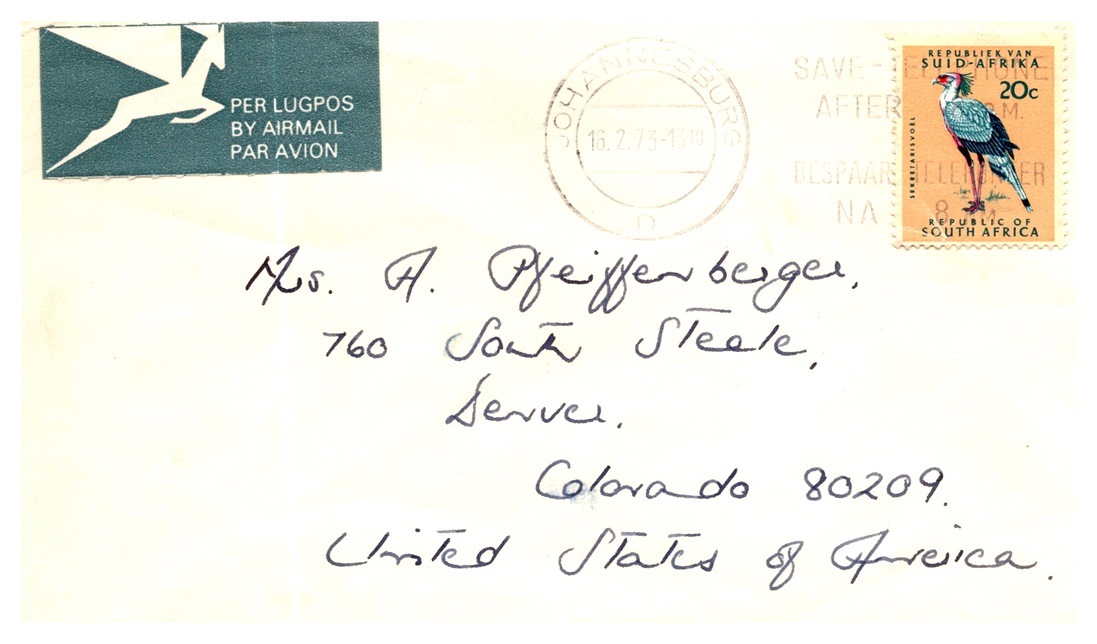 PER LUGPOS
BY AIRMAIL
PAR AVION
JOHANNESBURG
16.2.73-1330
D
SAVE-TELEPHONE
AFTER 8 P.M.
BESPAAR-TELEFONEER
NA 8 NM
REPUBLIEK VAN
SUID-AFRIKA
20c
SEKRETARISVOËL
REPUBLIC OF
SOUTH AFRICA
Mrs. A. Pfeiffenberger,
760 South Steele,
Denver.
Colorado 80209.
United States of America.